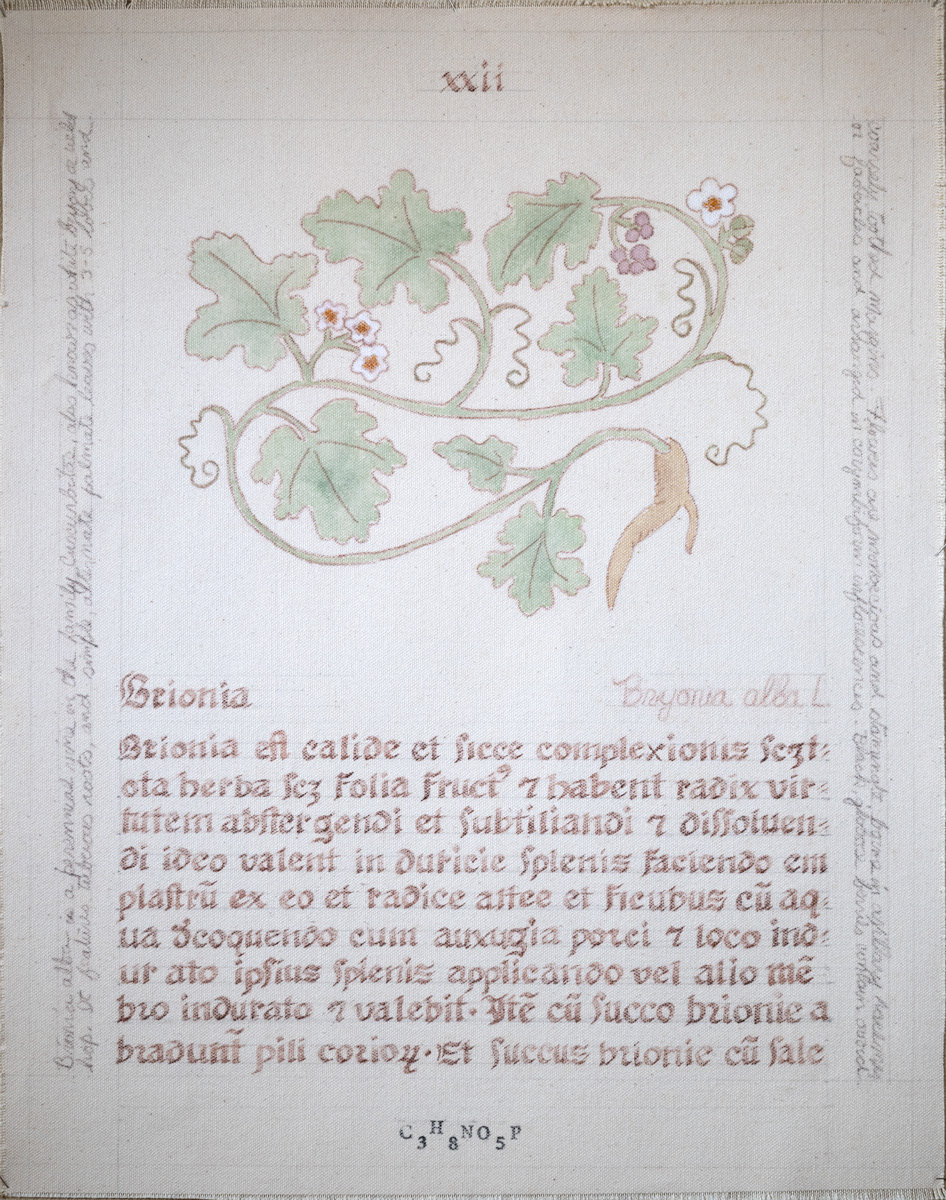 xxii
Brionia
Bryonia alba L.
Brionia eſt calide et ſicce complexionis ſcꝫ t:
ota herba ſcꝫ folia fructꝰ ⁊ habent radix vir:
tutem abſtergendi et ſubtiliandi ⁊ diſſoluen:
di ideo valent in duricie ſplenis faciendo em
plaſtrū ex eo et radice altee et ficubus cū aq:
ua dcoquendo cum auxugia porci ⁊ loco ind:
ur ato ipſius ſplenis applicando vel alio mē
bro indurato ⁊ valebit. Itē cū ſucco brionie a
bradunt̄ pili corioꝝ. Et ſuccus brionie cū ſale
C3H8NO5P
Bryonia alba is a perennial vine in the family Cucurbita, also known as white bryony or
hop. It tuberous roots, and simple, alternate palmate leaves with 3-5 lobes and
coarsely toothed margins. Flowers are monoecious and in axillary
or and arranged in corymbiform inflorescences.